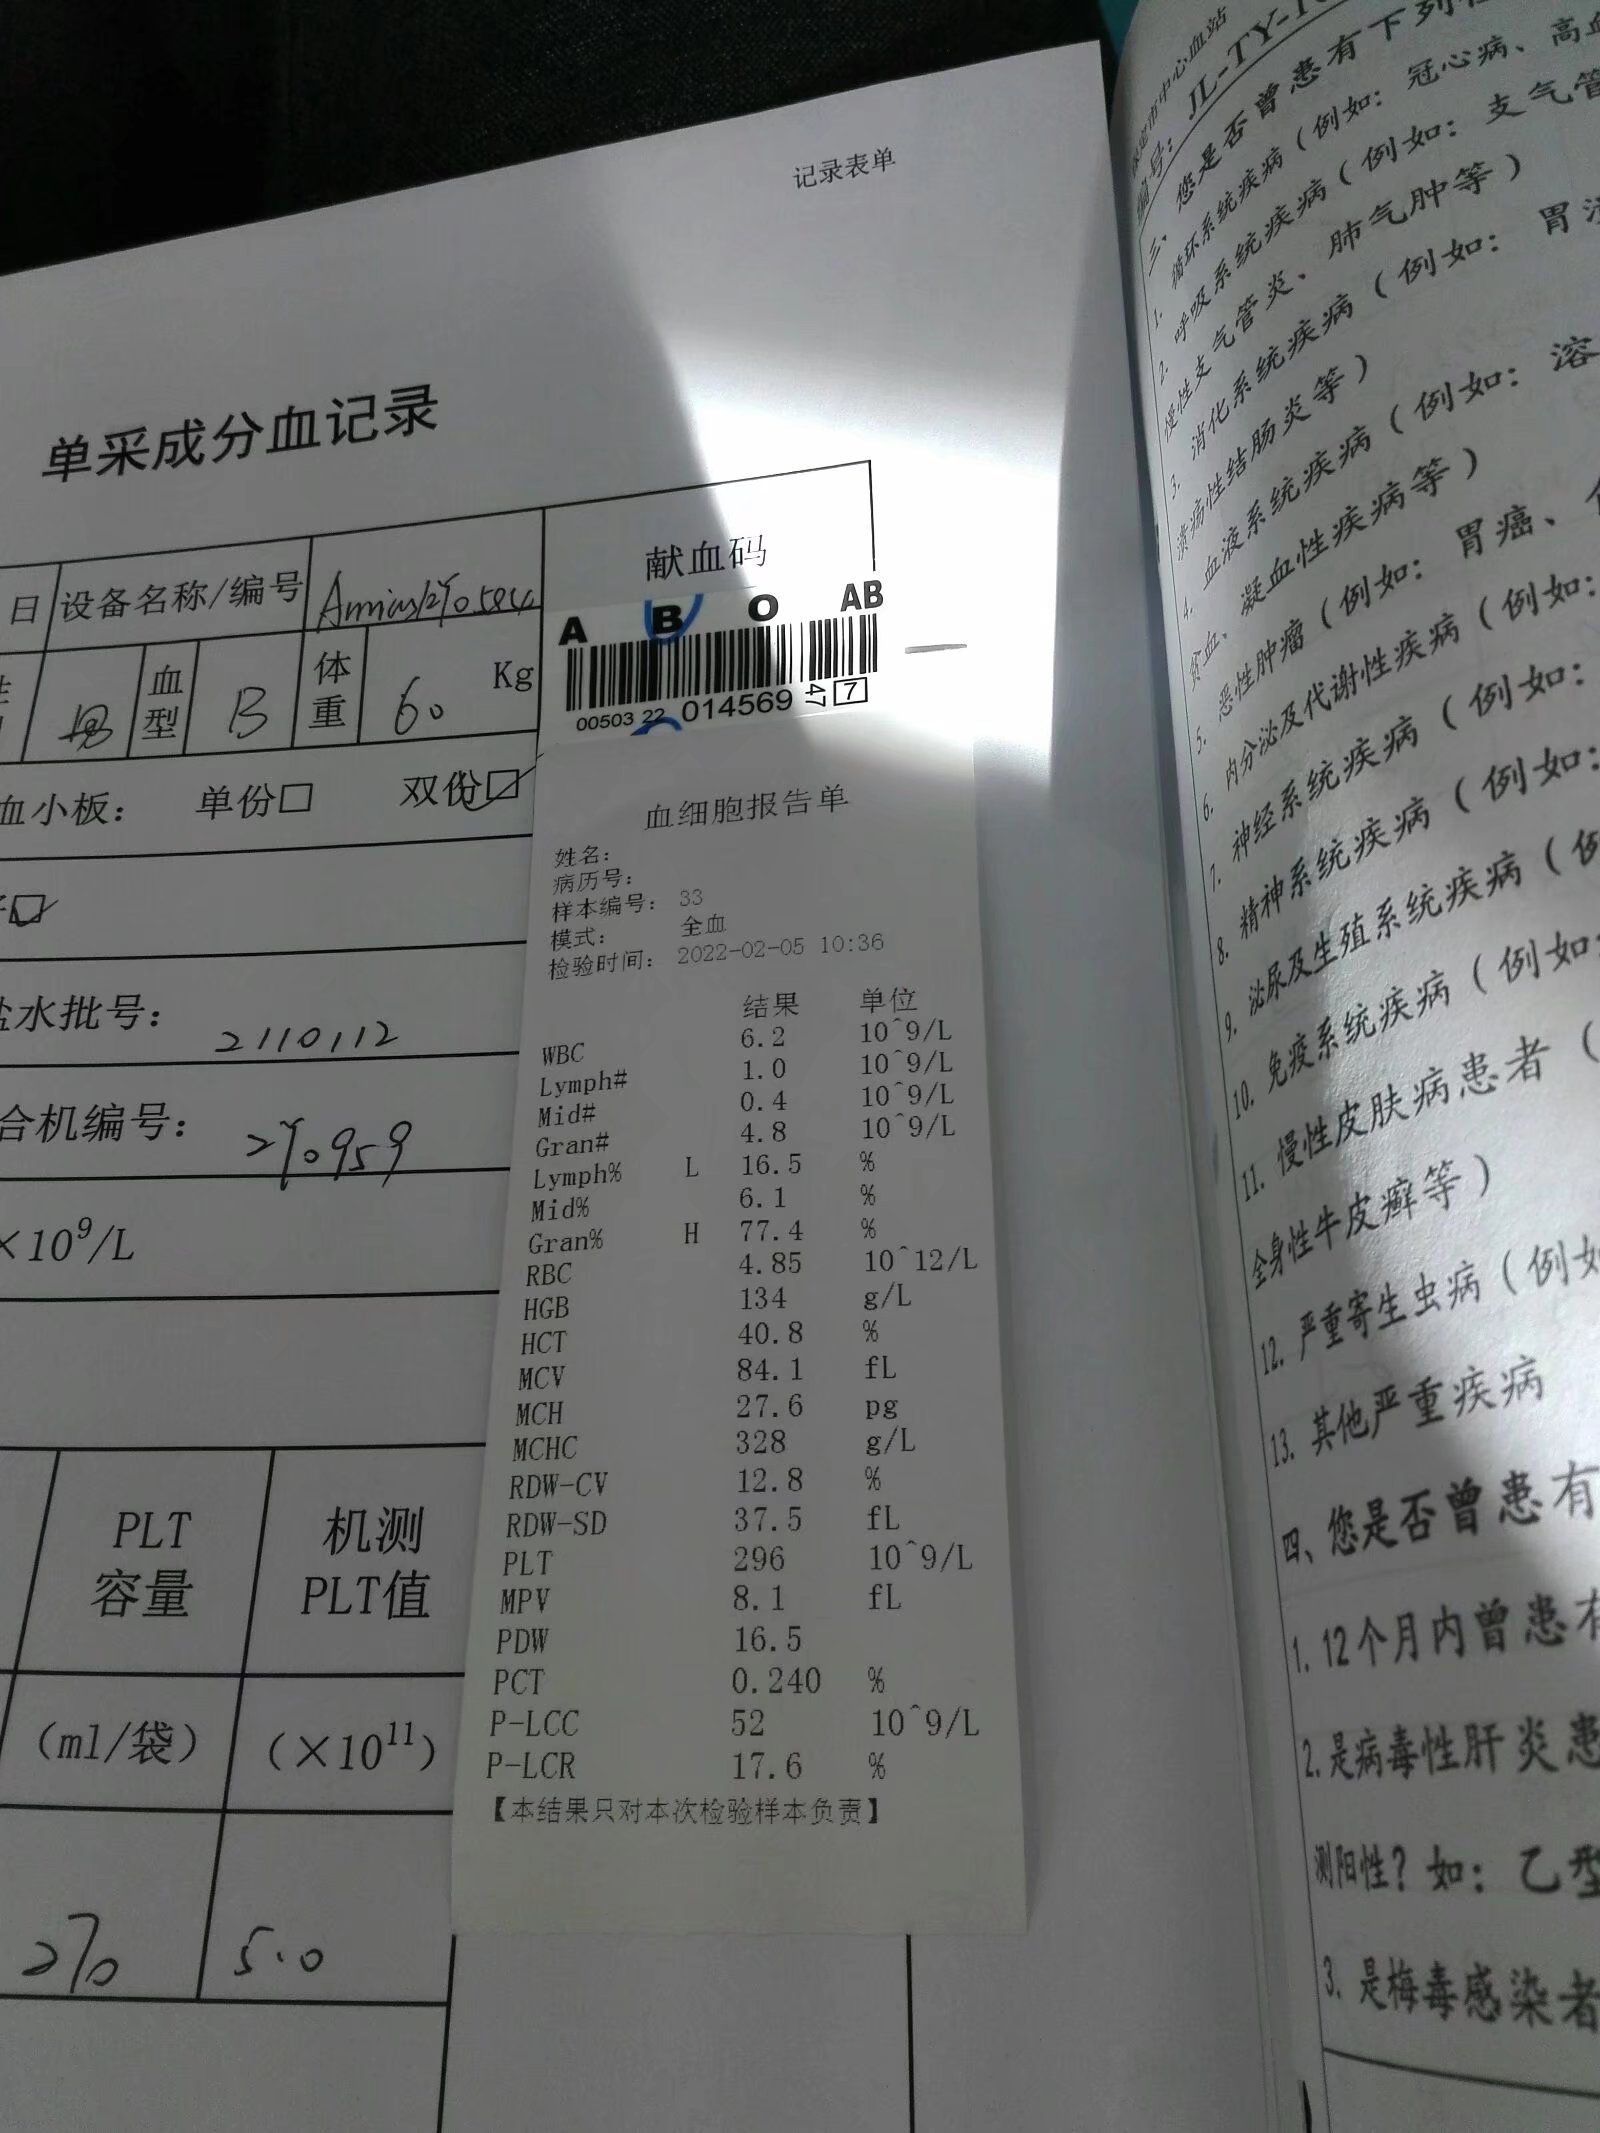 记录表单
单采成分血记录
日 设备名称/编号
献血码
A B O AB
00503 22 014569 47 7
血型 B 体重 60 Kg
血小板： 单份□ 双份□
血细胞报告单
姓名：
病历号：
样本编号： 33
模式： 全血
检验时间： 2022-02-05 10:36
结果 单位
WBC 6.2 10^9/L
Lymph# 1.0 10^9/L
Mid# 0.4 10^9/L
Gran# 4.8 10^9/L
Lymph% L 16.5 %
Mid% 6.1 %
Gran% H 77.4 %
RBC 4.85 10^12/L
HGB 134 g/L
HCT 40.8 %
MCV 84.1 fL
MCH 27.6 pg
MCHC 328 g/L
RDW-CV 12.8 %
RDW-SD 37.5 fL
PLT 296 10^9/L
MPV 8.1 fL
PDW 16.5
PCT 0.240 %
P-LCC 52 10^9/L
P-LCR 17.6 %
【本结果只对本次检验样本负责】
盐水批号： 2110112
合机编号：
×10⁹/L
PLT容量 机测PLT值
(ml/袋) (×10¹¹)
270 5.0
市中心血站
编号： JL-TY-
三、您是否曾患有下列
1. 循环系统疾病（例如：冠心病、高血
2. 呼吸系统疾病（例如：支气管
慢性支气管炎、肺气肿等）
3. 消化系统疾病（例如：胃溃
溃疡性结肠炎等）
4. 血液系统疾病（例如：溶
贫血、凝血性疾病等）
5. 恶性肿瘤（例如：胃癌、
6. 内分泌及代谢性疾病（例如：
7. 神经系统疾病（例如：
8. 精神系统疾病（例如：
9. 泌尿及生殖系统疾病（例
10. 免疫系统疾病（例如：
11. 慢性皮肤病患者（
全身性牛皮癣等）
12. 严重寄生虫病（例如
13. 其他严重疾病
四、您是否曾患有
1. 12个月内曾患有
2. 是病毒性肝炎患
测阳性？如：乙型
3. 是梅毒感染者